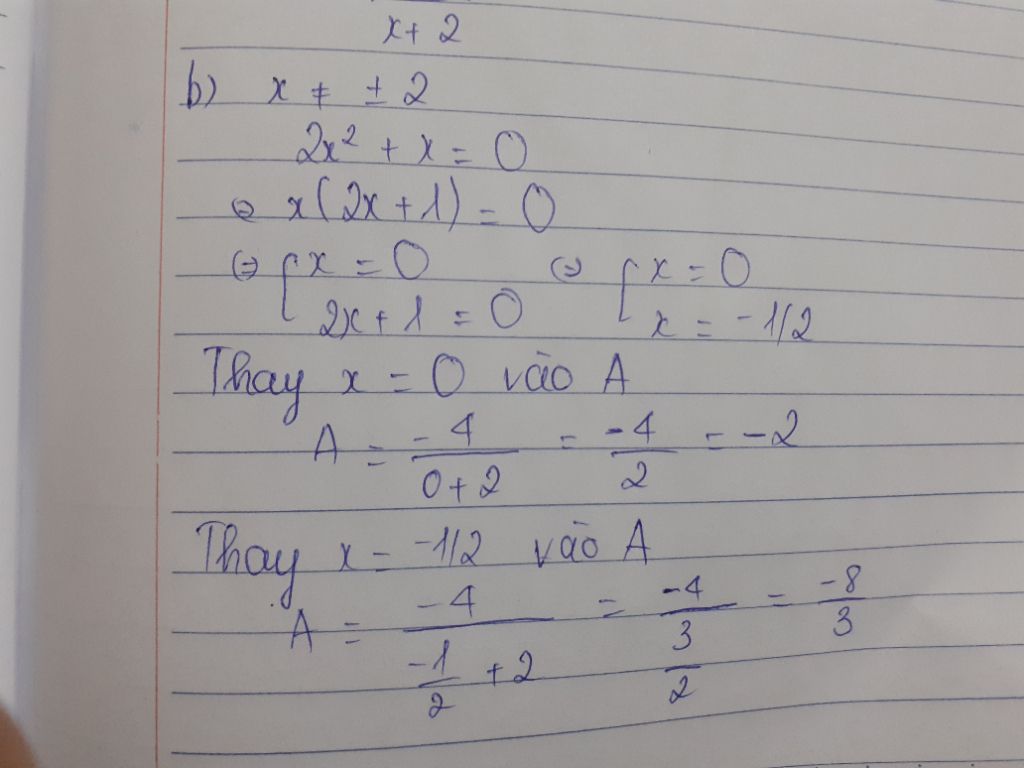 x+2
b) x ≠ ±2
2x² + x = 0
⇔ x(2x+1) = 0
⇔ [x = 0 ⇔ [x = 0
2x+1 = 0 x = -1/2
Thay x = 0 vào A
A = -4/(0+2) = -4/2 = -2
Thay x = -1/2 vào A
A = -4/(-1/2 + 2) = -4/(3/2) = -8/3